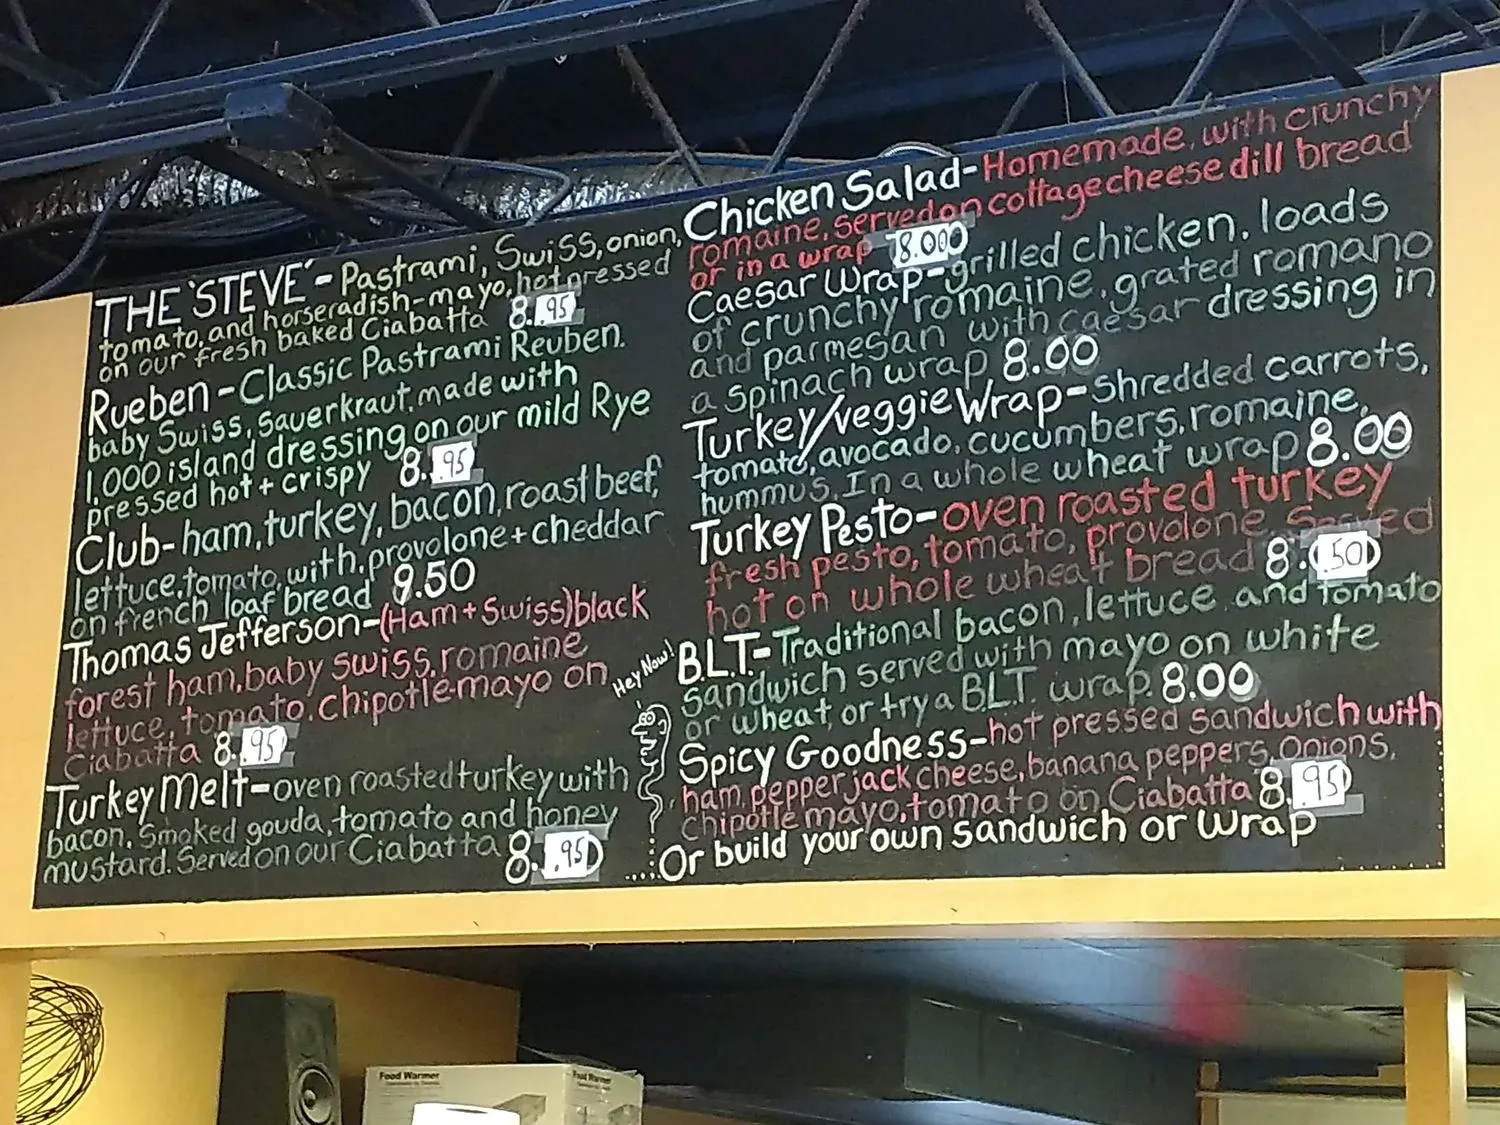 THE 'STEVE' - Pastrami, Swiss, onion,
tomato, and horseradish-mayo, hot pressed
on our fresh baked Ciabatta 8.95
Rueben - Classic Pastrami Reuben.
baby Swiss, Sauerkraut, made with
1,000 island dressing on our mild Rye
pressed hot + crispy 8.95
Club - ham, turkey, bacon, roast beef,
lettuce, tomato, with provolone + cheddar
on french loaf bread 9.50
Thomas Jefferson - (Ham + Swiss) black
forest ham, baby swiss, romaine
lettuce, tomato, chipotle-mayo on
Ciabatta 8.95
Turkey Melt - oven roasted turkey with
bacon, Smoked gouda, tomato and honey
mustard. Served on our Ciabatta 8.95
Hey Now!
Chicken Salad - Homemade, with crunchy
romaine, served on cottage cheese dill bread
or in a wrap 8.00
Caesar Wrap - grilled chicken, loads
of crunchy romaine, grated romano
and parmesan with caesar dressing in
a Spinach wrap 8.00
Turkey/veggie Wrap - Shredded carrots,
tomato, avocado, cucumbers, romaine,
hummus. In a whole wheat wrap 8.00
Turkey Pesto - oven roasted turkey
fresh pesto, tomato, provolone. Served
hot on whole wheat bread 8.50
B.L.T. - Traditional bacon, lettuce and tomato
sandwich served with mayo on white
or wheat, or try a B.L.T. wrap. 8.00
Spicy Goodness - hot pressed sandwich with
ham, pepper jack cheese, banana peppers, onions,
chipotle mayo, tomato on Ciabatta 8.95
Or build your own Sandwich or Wrap
Food Warmer
Food Warmer